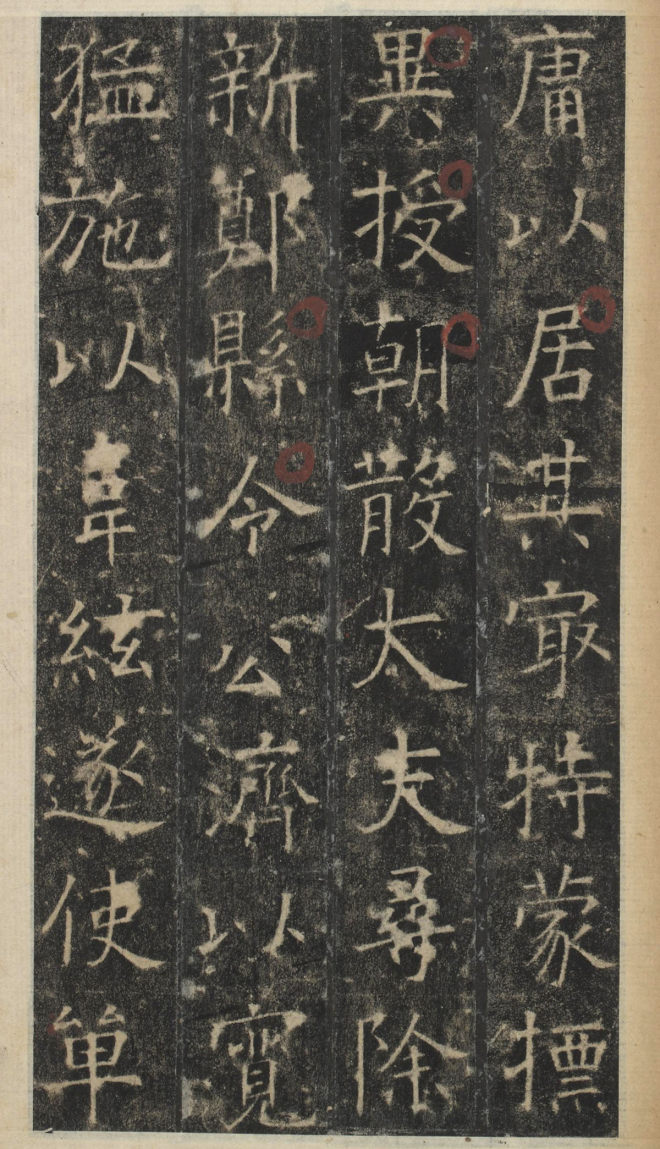 庸以居其冣特蒙標
異授朝散大夫尋除
新鄭縣令公濟以寬
猛施以韋絃遂使單